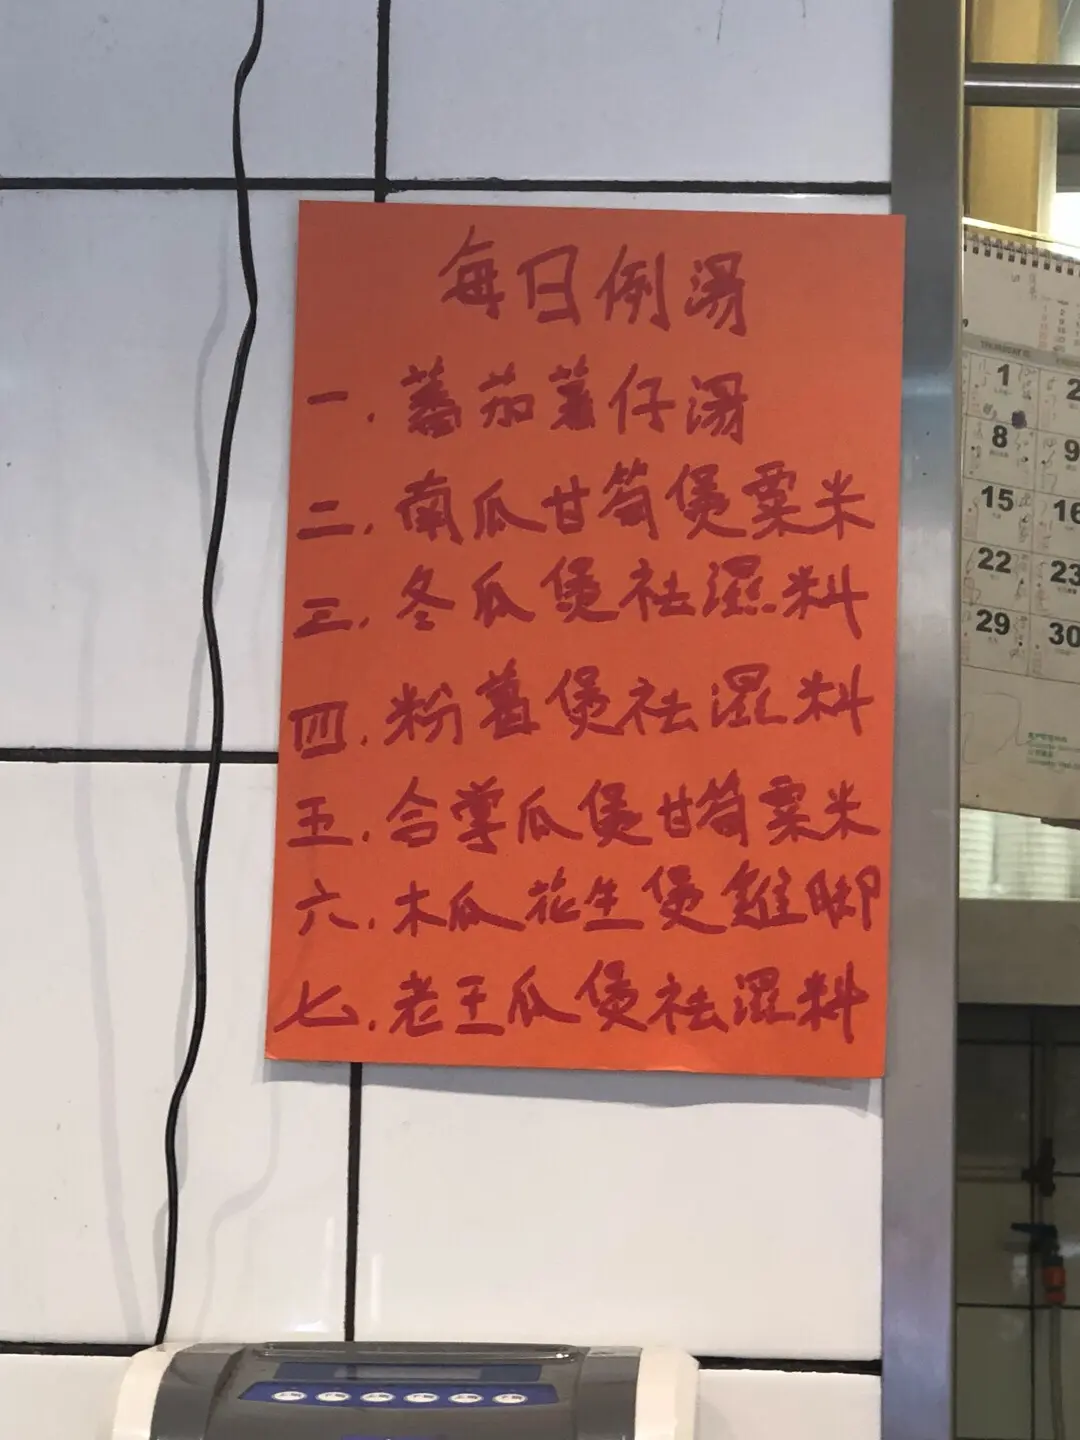 每日例湯
一.蕃茄薯仔湯
二.南瓜甘筍煲粟米
三.冬瓜煲祛濕料
四.粉葛煲祛濕料
五.合掌瓜煲甘筍粟米
六.木瓜花生煲雞腳
七.老王瓜煲祛濕料
1
2
8
9
15
16
22
23
29
30